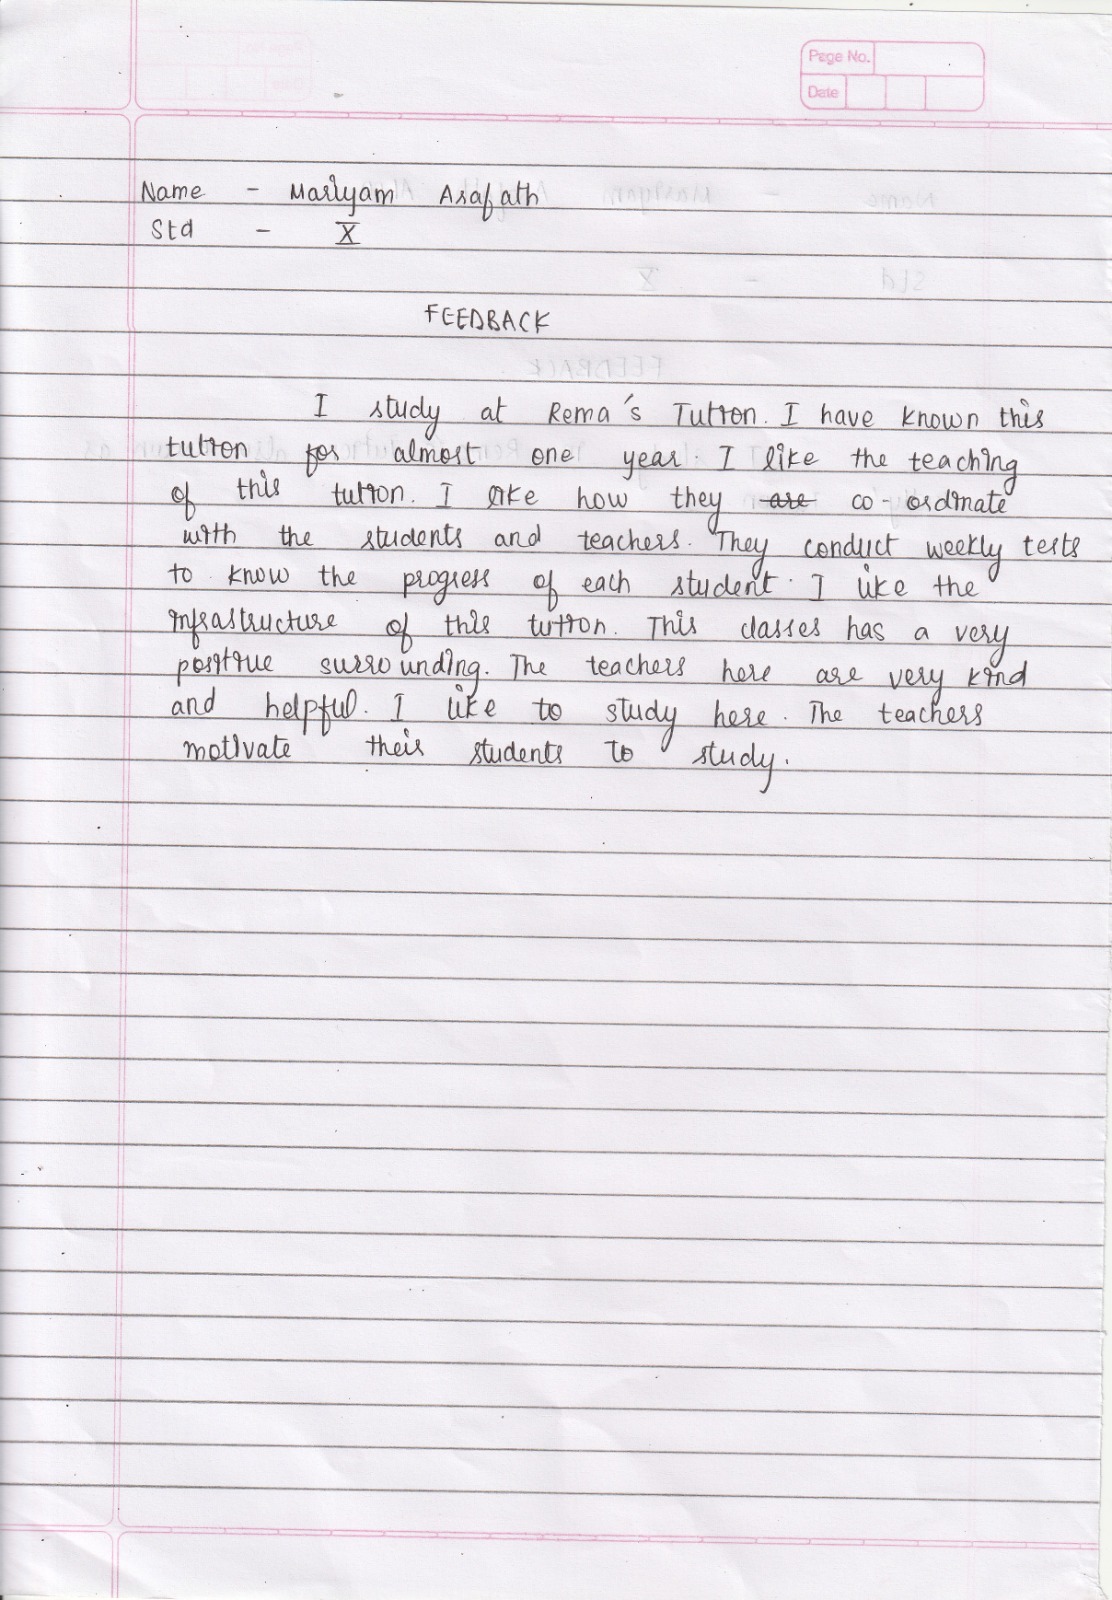 Page No.
Date
Name - Mariyam Arafath
Std - X
FEEDBACK
I study at Rema's Tution. I have known this
tution for almost one year. I like the teaching
of this tution. I like how they are co-ordinate
with the students and teachers. They conduct weekly tests
to know the progress of each student. I like the
infrastructure of this tution. This classes has a very
positive surrounding. The teachers here are very kind
and helpful. I like to study here. The teachers
motivate their students to study.